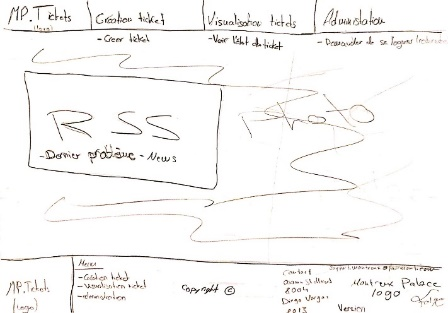 MP.Tickets
(logo)
Création ticket
- Créer ticket
Visualisation tickets
- Voir l'état du ticket
Administation
- Demander de se logguer
RSS
- Dernier problème - News
Photo
MP.Tickets
(logo)
Menu
- Création ticket
- Visualisation ticket
- administration
Copyright ©
Contact
8004
Diego Vargas
2013
Version
Montreux Palace
logo